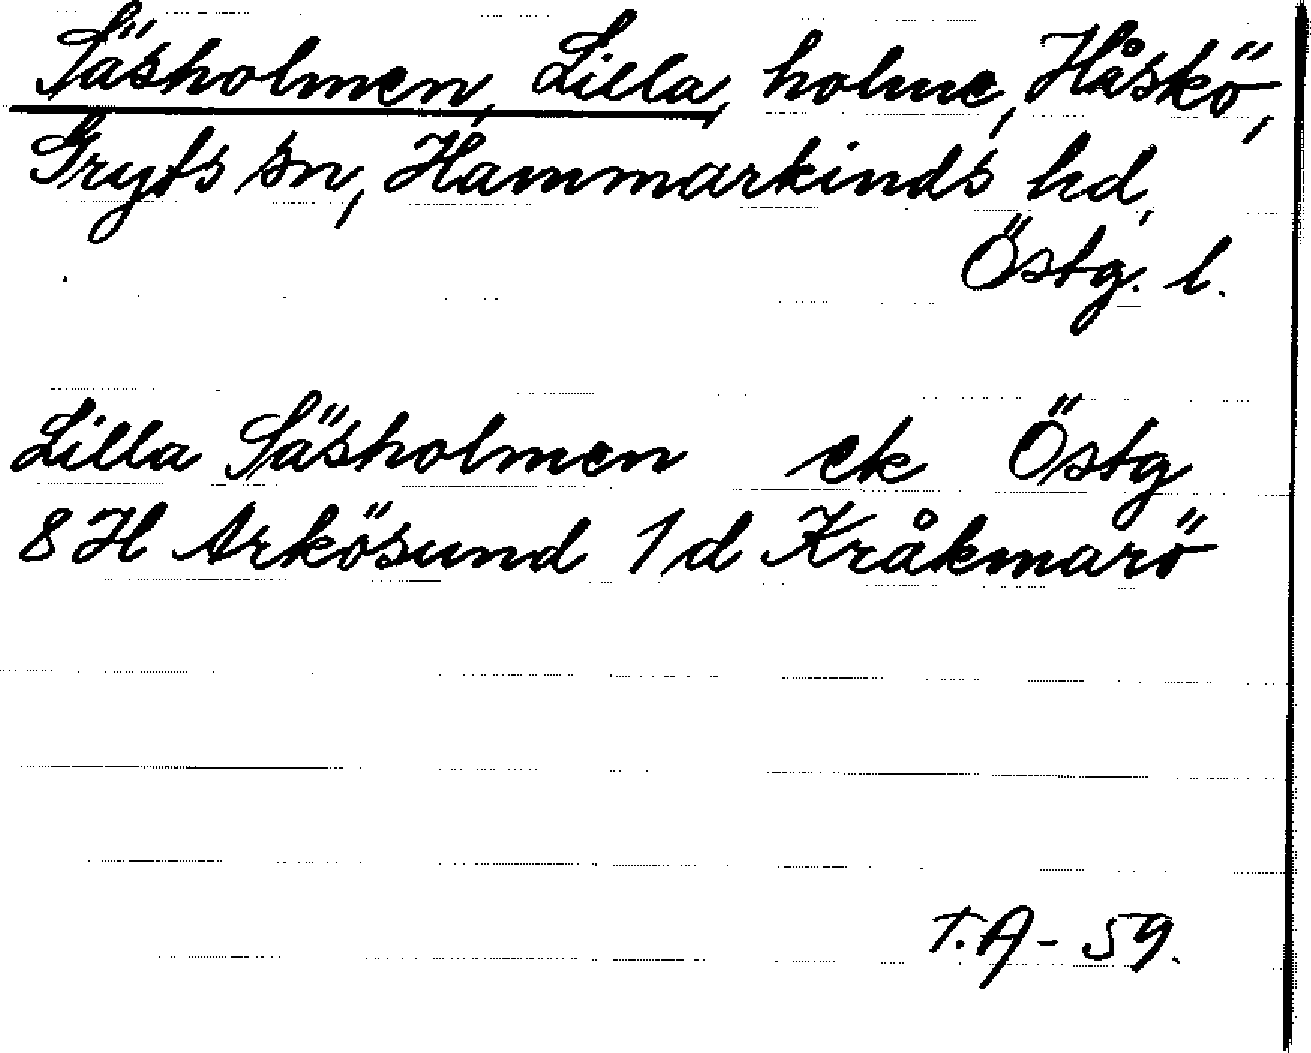 Säsholmen, Lilla, holme, Håskö,
Gryts sn, Hammarkinds hd,
Östg. l.
Lilla Säsholmen ek Östg
8H Arkösund 1d Kråkmarö
T.A - 59.